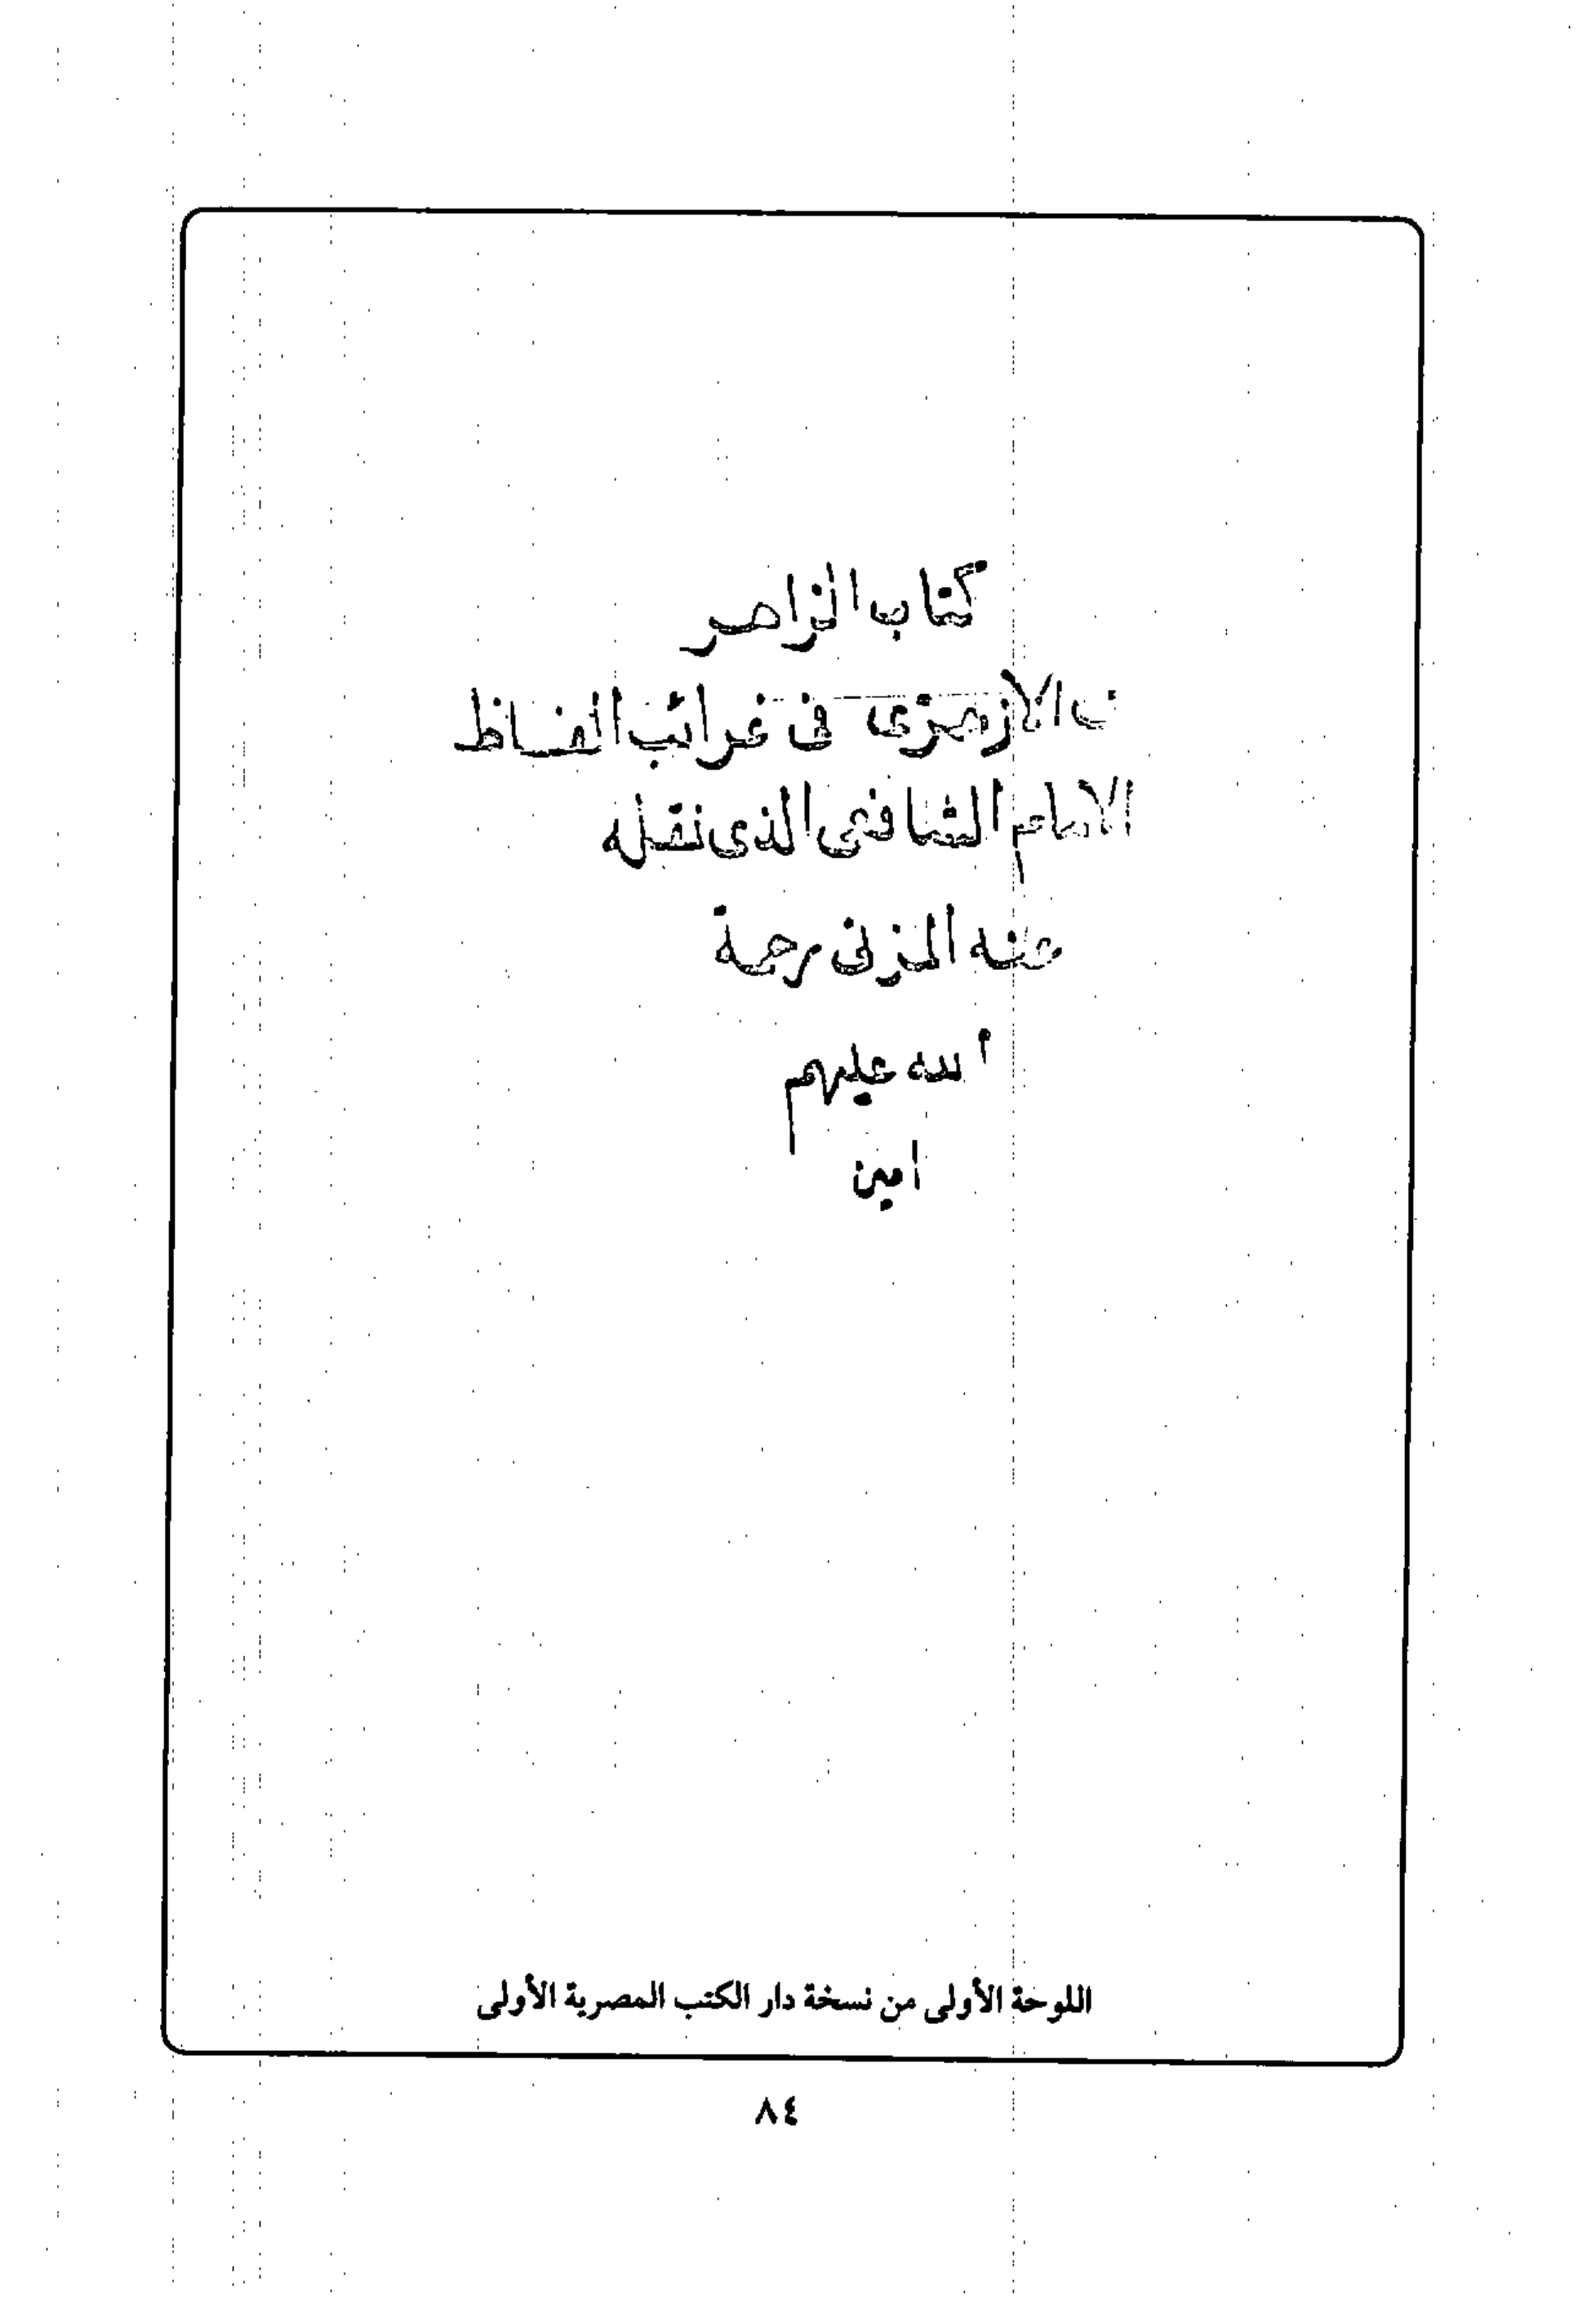 كتاب الزاهر
الازهرى فى غرائب الفاظ
الامام الشافعى الذى نقله
عنه المزنى رحمة
الله عليهم
امين
اللوحة الأولى من نسخة دار الكتب المصرية الأولى
٨٤